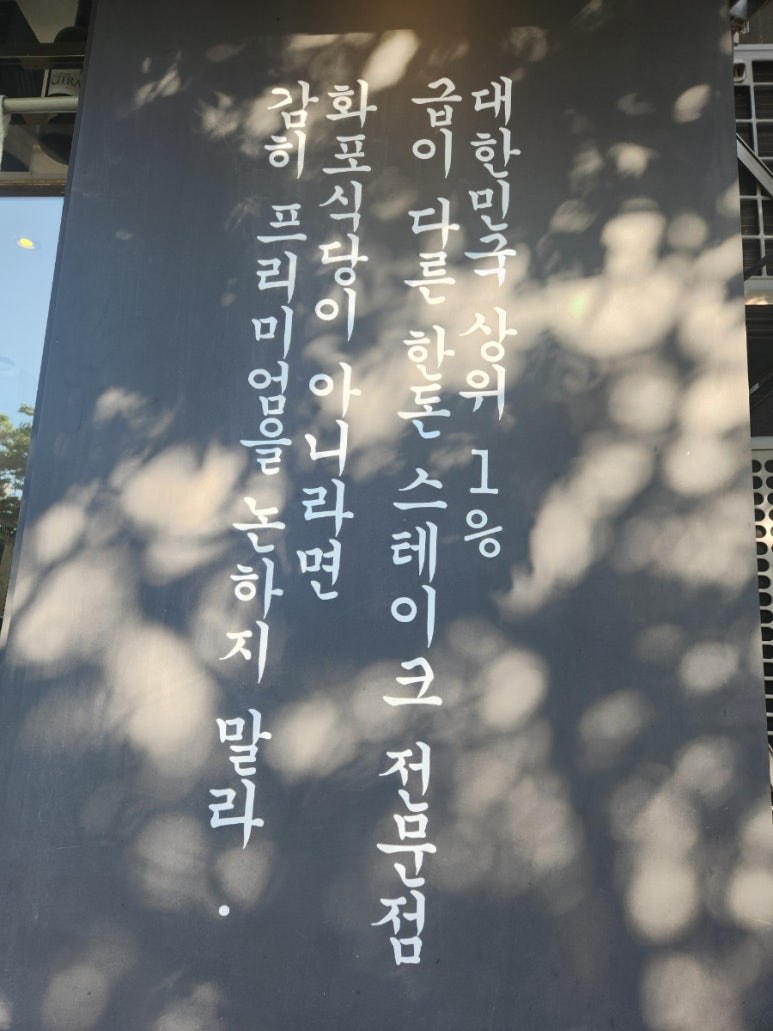 대한민국 상위 1%
급이 다른 한돈 스테이크 전문점
화포식당이 아니라면
감히 프리미엄을 논하지 말라.